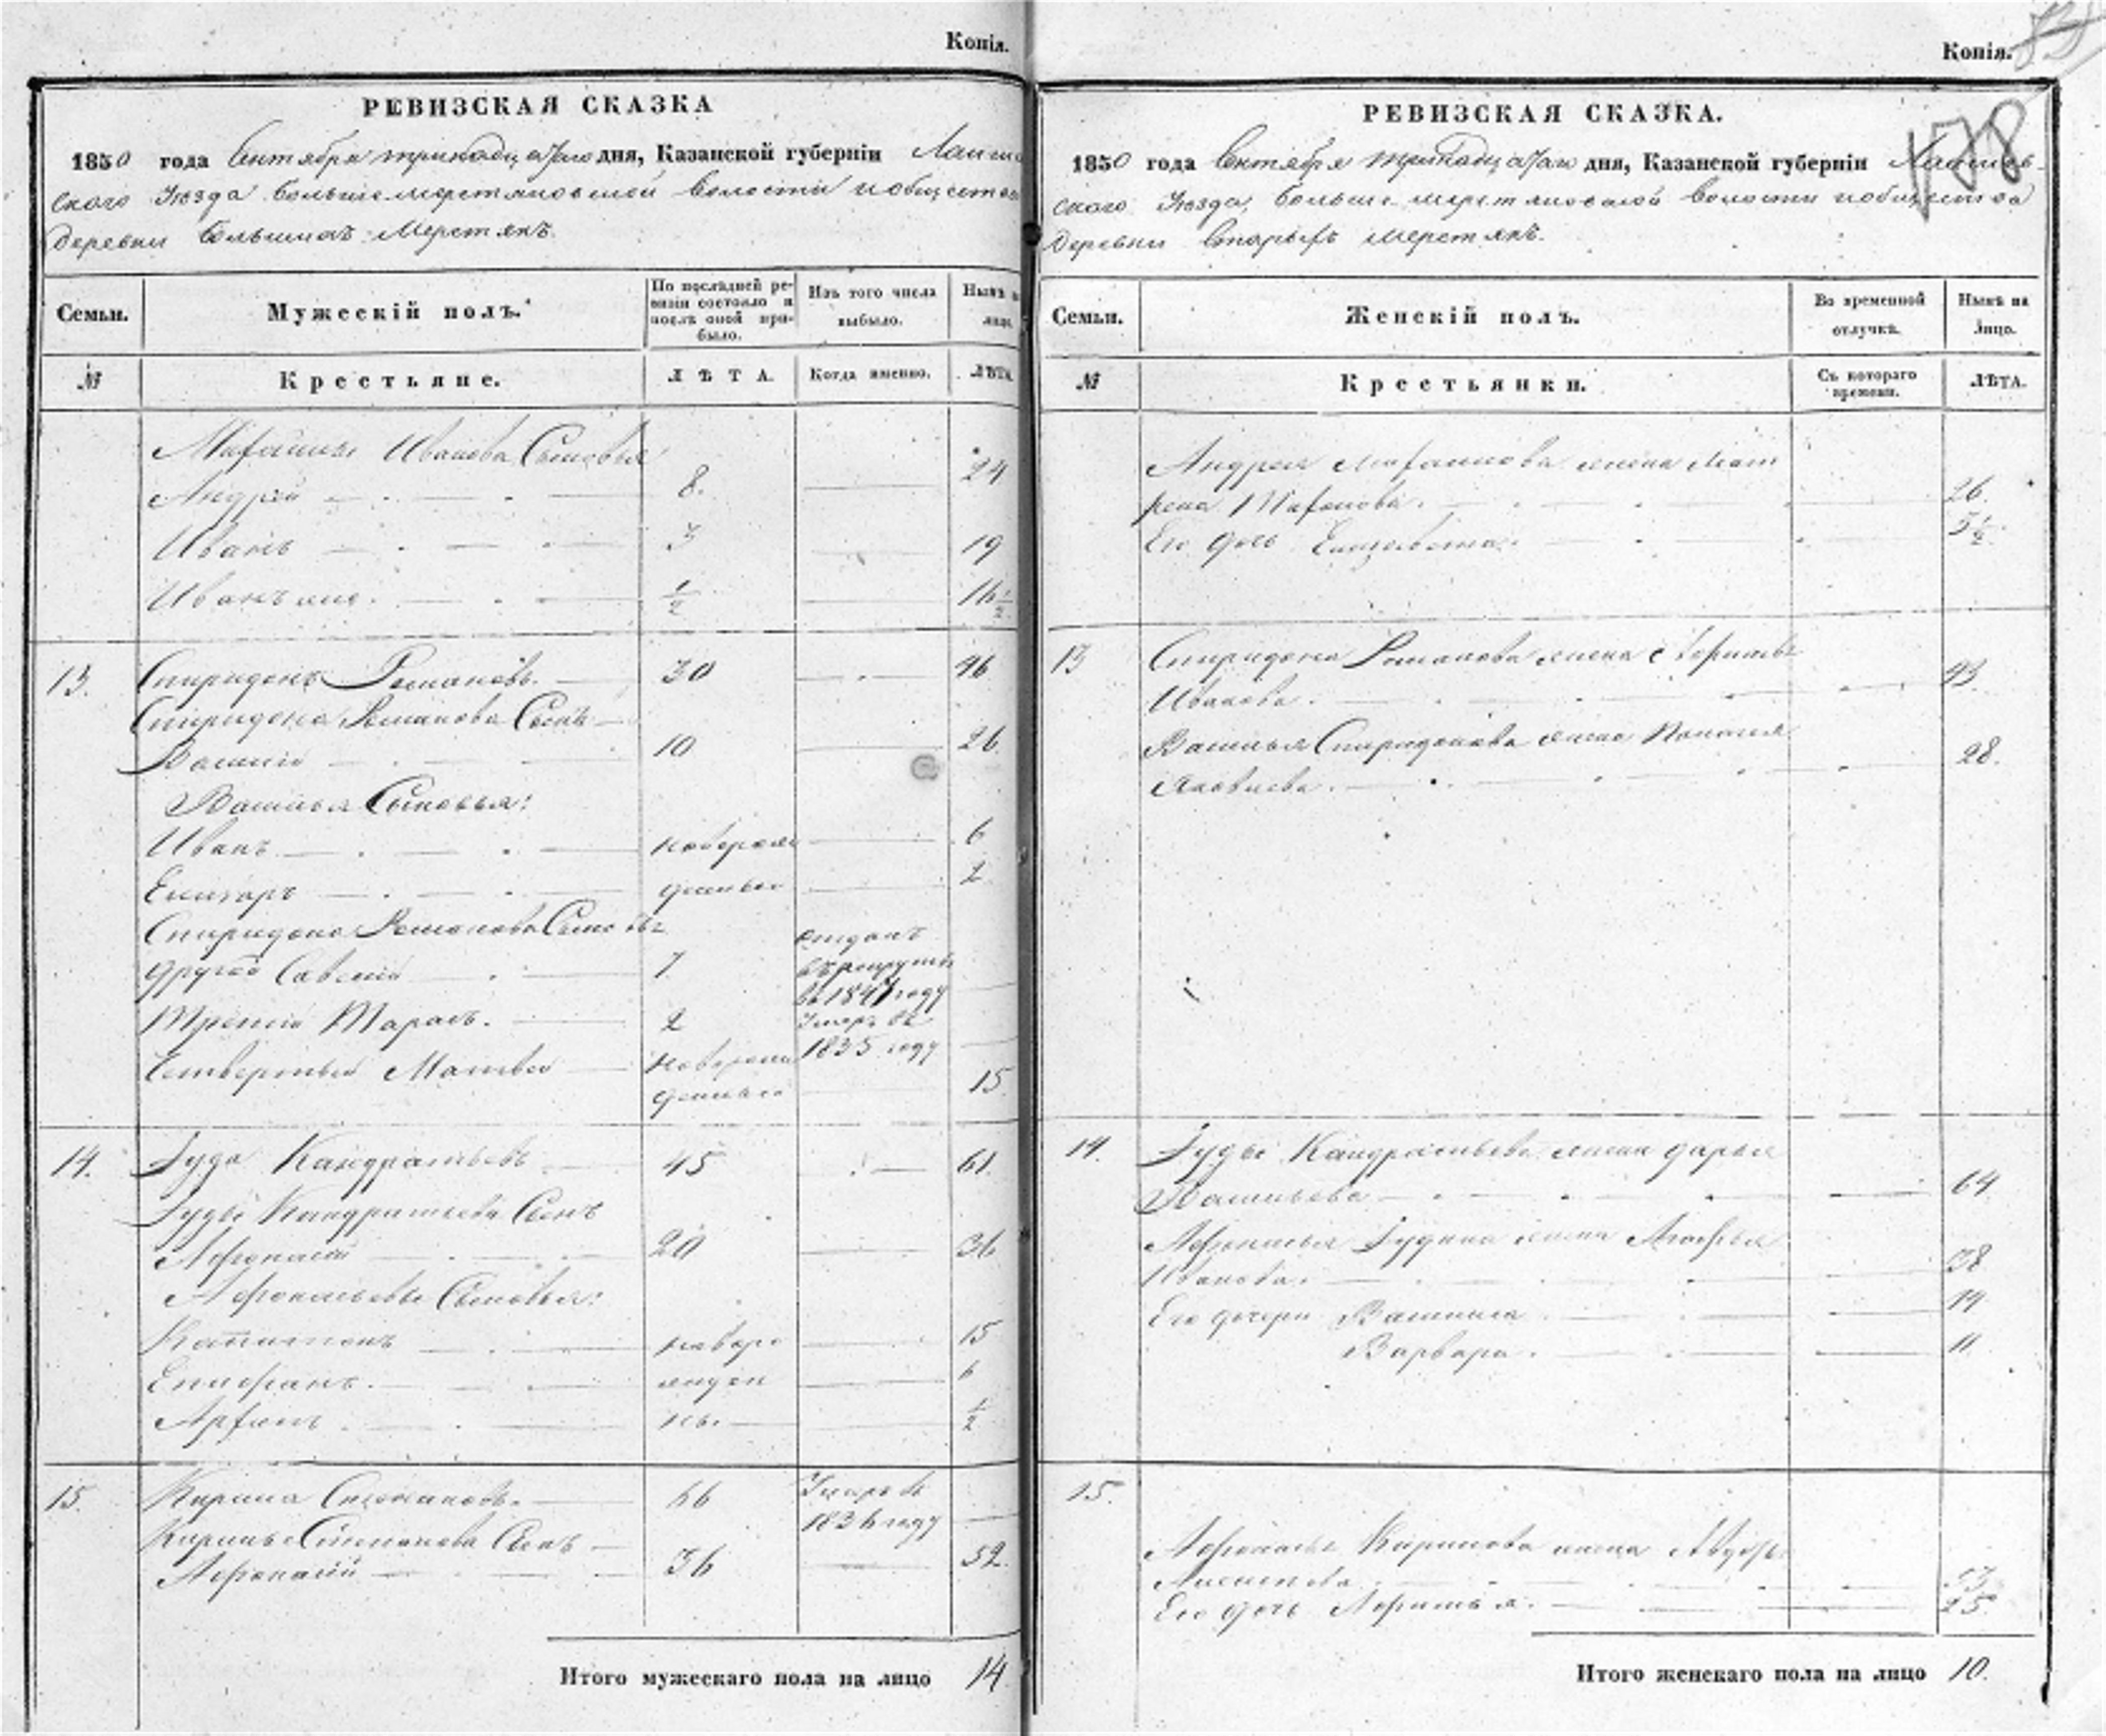 Копія.
РЕВИЗСКАЯ СКАЗКА
1850 года Сентября тринадцатаго дня, Казанской губерніи Лаише
скаго Уѣзда Больше меретяковской волости и общества
Деревни Большихъ Меретякъ
Семьи. Мужескій полъ. По послѣдней ревизіи состояло и послѣ оной прибыло. Изъ того числа выбыло. Нынѣ на лицо.
№ Крестьяне. ЛѢТА. Когда именно. ЛѢТА.
Иванова Сыновья
Андрей 8. 24
Иванъ 3 19
Иванъ же. 1/2 16 1/2
13. Спиридонъ Романовъ. 30 46
Спиридона Романова Сынъ
Василій 10 26.
Василья Сыновья:
Иванъ новорож 6
Елизаръ денные 2
Спиридона Романова Сыновья
другой Савелій 7 отданъ въ рекруты въ 1847 году
Третій Тарасъ. 2 Умеръ въ 1835 году
Четвертый Матвей новорожденный 15
14. Іуда Кандратьевъ 45 61.
Іуды Кандратьева Сынъ
Афонасій 20 36
Афонасьевы Сыновья:
Капитонъ новоро 15
Епифанъ. жден 6
ны. 1/2
15. Кирила Степановъ. 66 Умеръ въ 1836 году
Кирилы Степанова Сынъ
Афонасій 36 52.
Итого мужескаго пола на лицо 14
Копія.
178
РЕВИЗСКАЯ СКАЗКА.
1850 года Сентября тринадцатаго дня, Казанской губерніи Лаишев
скаго Уѣзда, Больше меретяковской волости и общества
Деревни Старыхъ Меретякъ.
Семьи. Женскій полъ. Во временной отлучкѣ. Нынѣ на лицо.
№ Крестьянки. Съ котораго времени. ЛѢТА.
Андрея жена Мат
рена 26.
Его дочь Елизавета. 5 1/2.
13 Спиридона Романова жена
Иванова. 43.
Василья Спиридонова жена
Яковлева. 28.
14. Іуды Кандратьева жена Дарья
Васильева 64
Афонасья Іудина жена Марфья
Иванова. 38
Его дочери Василиса 14
Варвара. 11
15.
Афонасья Кирилова жена Авдотья
53
Его дочь 25
Итого женскаго пола на лицо 10.